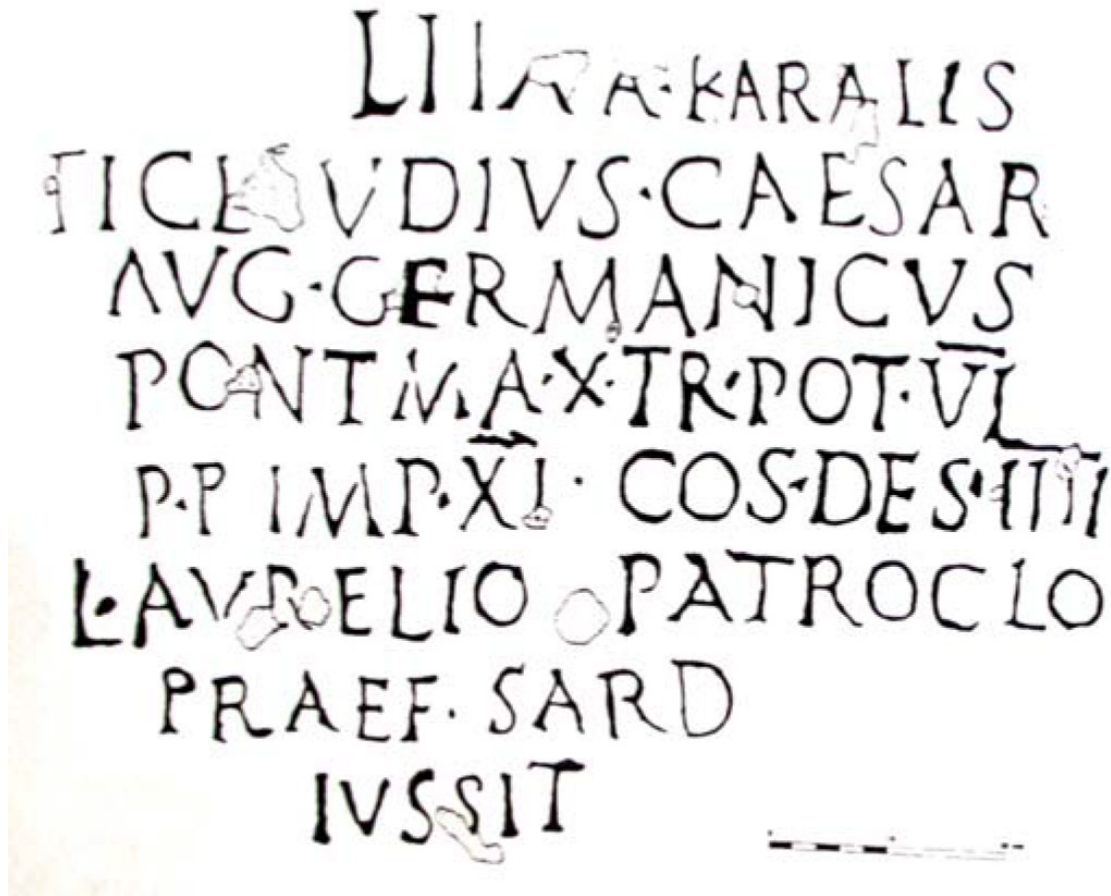 A·KARALIS
TI CLAVDIVS·CAESAR
AVG·GERMANICVS
PONT MA·X·TR·POT·V̅L
P·P IMP·X̅I̅· COS·DES·IIII
L·AVRELIO PATROCLO
PRAEF·SARD
IVSSIT